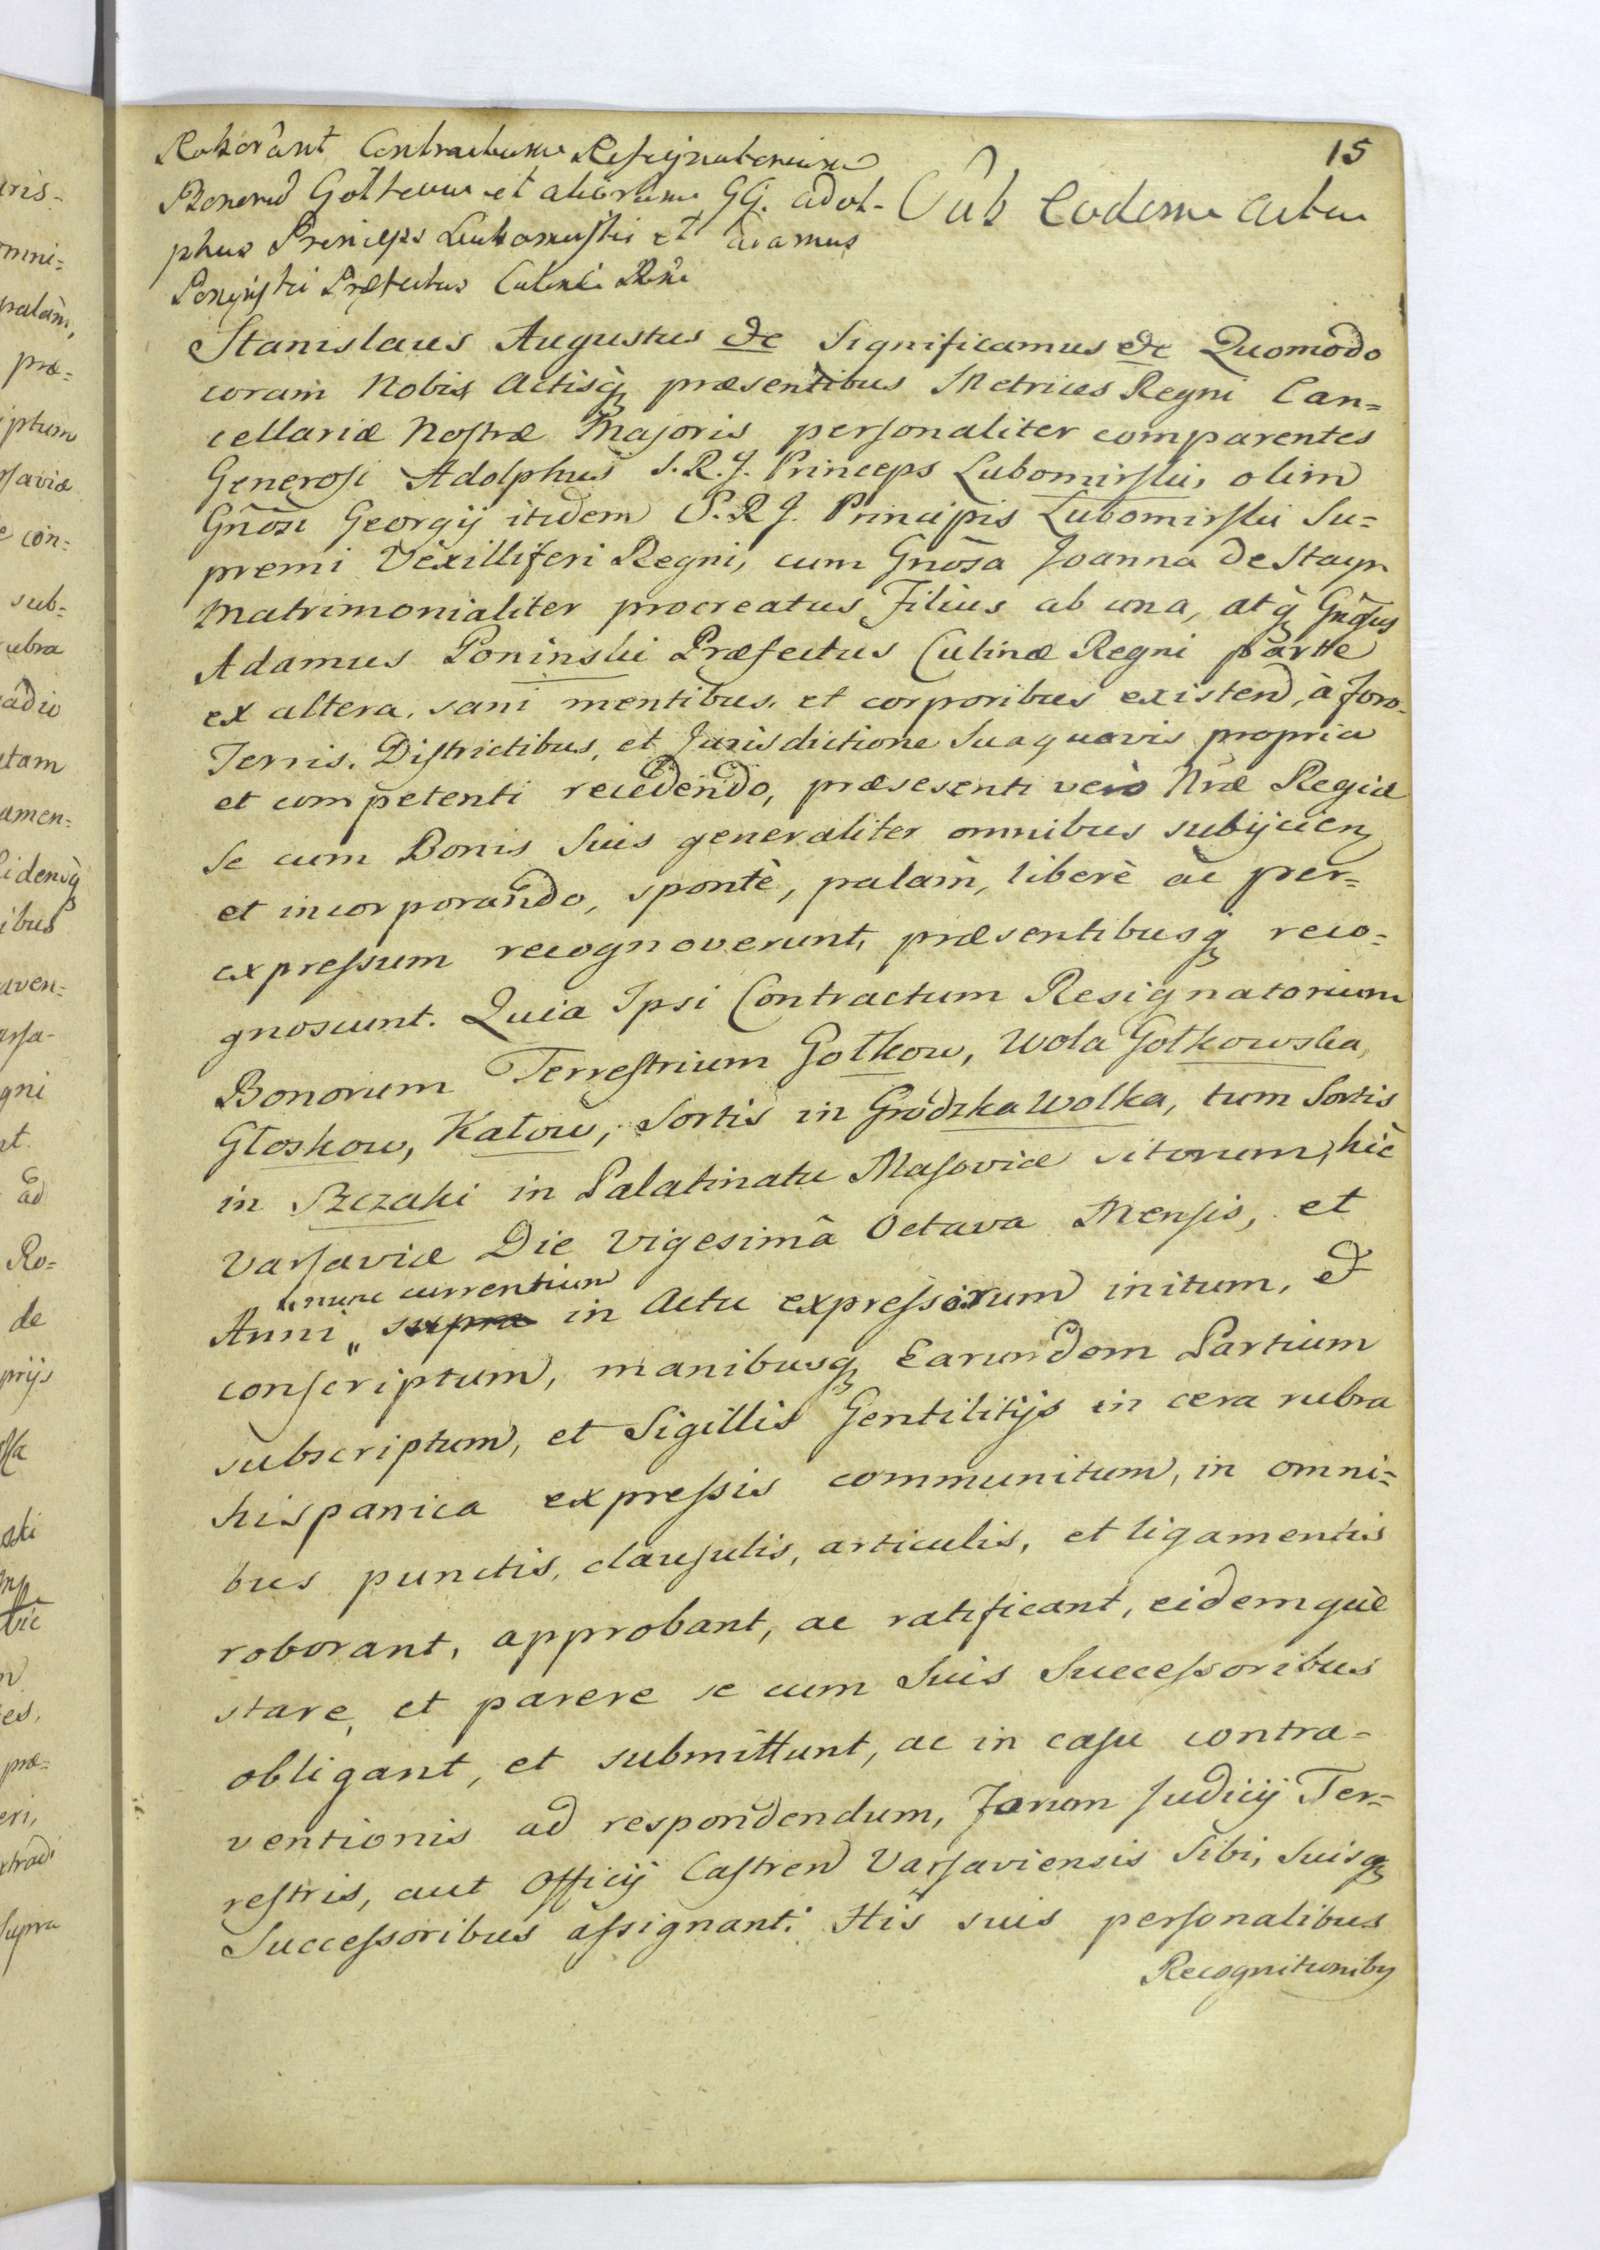 15
Roborant Contractum Resignatorium
Bonorum Gołkow et aliorum GG. Adol-
phus Princeps Lubomirski et Adamus
Poninski Præfectus Culinæ Rni
Sub Eodem Actu
Stanislaus Augustus &c Significamus &c Quomodo
coram Nobis Actisq præsentibus Metrices Regni Can=
cellariæ Nostræ Majoris personaliter comparentes
Generosi Adolphus S.R.J. Princeps Lubomirski, olim
Gnosi Georgij itidem S.R.J. Principis Lubomirski Su=
premi Vexilliferi Regni, cum Gnosa Joanna de Stayn
Matrimonialiter procreatus Filius ab una, atq Gnosus
Adamus Poninski Præfectus Culinæ Regni partte
ex altera, sani mentibus, et corporibus existend, à foro
Terris, Districtibus, et Jurisdictione Suaquavis propria
et competenti recedendo, præsesenti verò Nræ Regiæ
Se cum Bonis Suis generaliter omnibus subijcien
et incorporando, spontè, palàm, liberè ac per=
expressum recognoverunt, præsentibusq reco=
gnoscunt. Quia Ipsi Contractum Resignatorium
Bonorum Terrestrium Gołkow, Wola Gołkowska,
Głoskow, Kałow, Sortis in Gródzka Wolka, tum Sortis
in Szczaki in Palatinatu Masoviæ sitorum, hic
Varsaviæ Die Vigesimâ Octava Mensis, et
nunc currentium
Anni „ supra in Actu expressorum initum, &
conscriptum, manibusq Earundem Partium
subscriptum, et Sigillis Gentilitijs in cera rubra
hispanica expressis communitum, in omni=
bus punctis, clausulis, articulis, et ligamentis
roborant, approbant, ac ratificant, eidemquè
stare, et parere se cum Suis Successoribus
obligant, et submittunt, ac in casu contra=
ventionis ad respondendum, Forum Judicij Ter=
restris, aut Officij Castren Varsaviensis Sibi, Suisq
Successoribus assignant: His suis personalibus
Recognitionibus